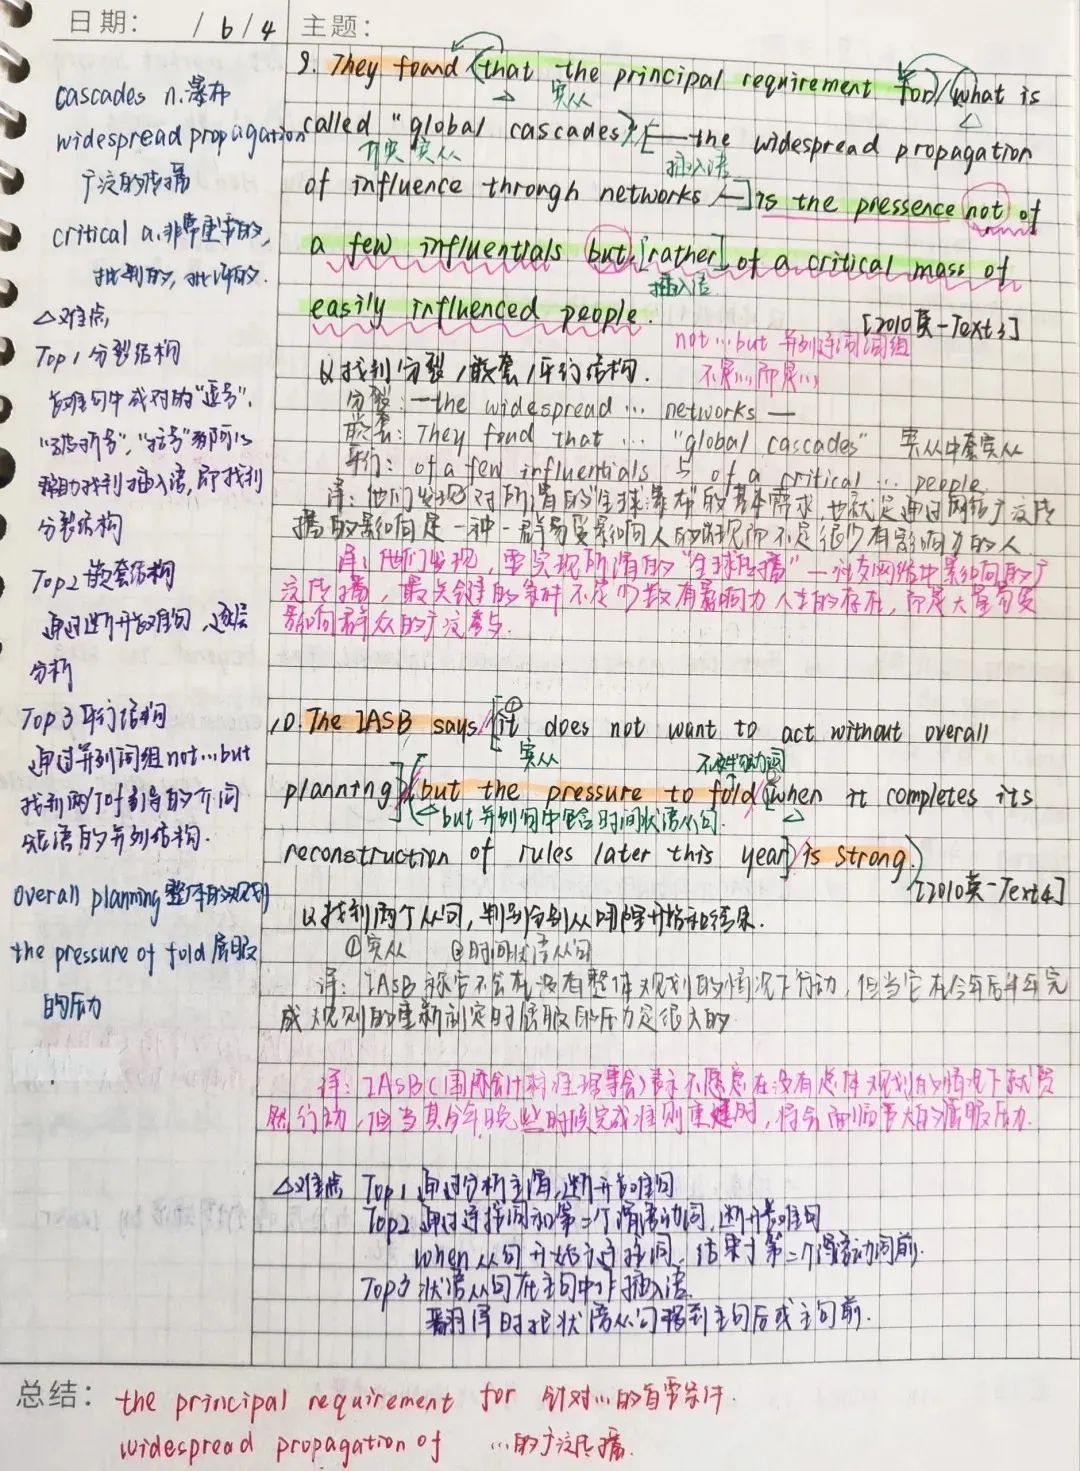 日期: / 6 / 4 主题:
cascades n.瀑布
widespread propagation
广泛的传播
critical a.非常重要的,
批判的,批评的.
△难点
Top 1 分裂结构
长难句中成对的"逗号",
"破折号","括号"都可以
帮助找到插入语,即找到
分裂结构
Top2 嵌套结构
通过断开长难句,逐层
分析
Top 3 平行结构
通过并列词组not...but
找到两个of引导的介词
短语的并列结构.
overall planning 整体的规划
the pressure of fold 屈服
的压力
9. They found (that the principal requirement for/what is
实从
called "global cascades" [—the widespread propagation
介宾 宾从 插入语
of influence through networks —] is the pressence not of
a few influentials but [rather] of a critical mass of
插入语
easily influenced people.
[2010英一Text3]
not...but 并列连词词组
不是...而是...
以找到分裂/嵌套/平行结构.
分裂: —the widespread ... networks —
嵌套: They foud that ... "global cascades" 宾从中套宾从
平行: of a few influentials 与 of a critical ... people.
译:他们发现对所谓的"全球瀑布"的基本需求,也就是通过网络广泛传
播的影响是一种一群易受影响人的出现而不是很少有影响力的人.
译:他们发现,要实现所谓的"全球传播"—社交网络中影响的广
泛传播,最关键的条件不是少数有影响力人士的存在,而是大量易受
影响群众的广泛参与.
10. The IASB says/[it ① does not want to act without overall
宾从 不定式 动词
planning] (but the pressure to fold [when it completes its
but 并列句中包含时间状语从句.
reconstruction of rules later this year] is strong.)
[2010英一Text4]
以找到两个从句,判别分别从哪里开始和结束.
①宾从 ②时间状语从句
译: IASB 称它不会在没有整体规划的情况下行动,但当它在今年后半年完
成规则的重新制定时屈服的压力是很大的.
译: IASB(国际会计标准理事会)表示不愿意在没有总体规划的情况下就贸
然行动,但当其今年晚些时候完成准则重建时,将会面临更大的屈服压力.
△难点 Top 1 通过分析主谓,断开长难句
Top2 通过连接词和第二个谓语动词,断开长难句
when 从句开始于连接词,结束于第二个谓语动词前.
Top3 状语从句在主句中作插入语.
翻译时把状语从句挪到主句后或主句前.
总结: the principal requirement for 针对...的首要条件.
widespread propagation of ...的广泛传播.